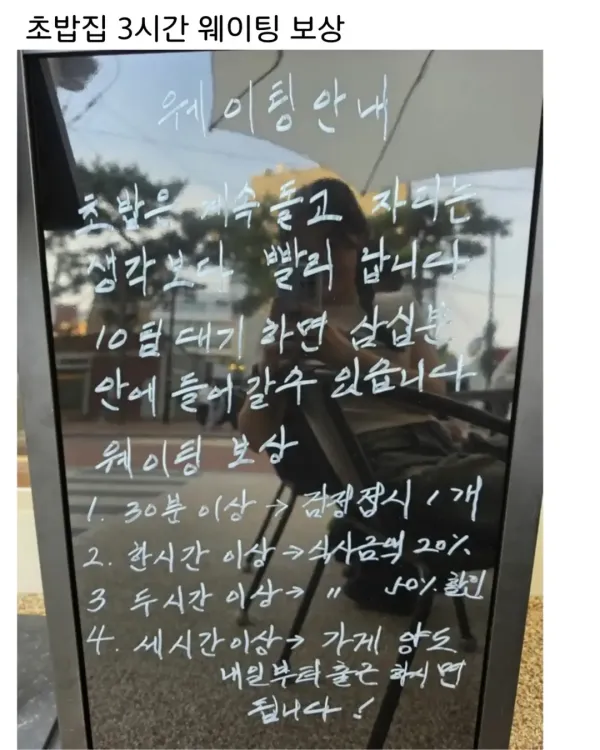 초밥집 3시간 웨이팅 보상
웨이팅 안내
초밥은 계속 돌고 자리는
생각보다 빨리 납니다
10팀 대기 하면 삼십분
안에 들어 갈수 있습니다
웨이팅 보상
1. 30분 이상 → 검정접시 1개
2. 한시간 이상 → 식사금액 20%
3 두시간 이상 → " 50% 할인
4. 세시간이상 → 가게 양도
내일부터 출근 하시면
됩니다!